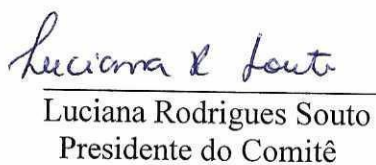 Luciana R Souto
Luciana Rodrigues Souto
Presidente do Comitê